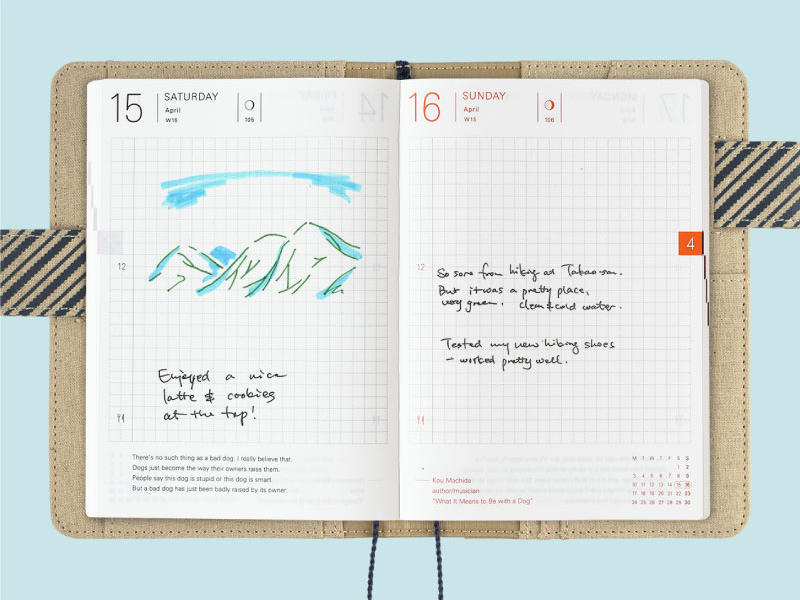 15
SATURDAY
April
W15
105
12
Enjoyed a nice
latte & cookies
at the top!
There's no such thing as a bad dog. I really believe that.
Dogs just become the way their owners raise them.
People say this dog is stupid or this dog is smart.
But a bad dog has just been badly raised by its owner.
16
SUNDAY
April
W15
106
4
12
So sore from hiking at Takao-san.
But it was a pretty place,
very green. Clean & cold water.
Tested my new hiking shoes
– worked pretty well.
Kou Machida
author/musician
"What It Means to Be with a Dog"
M T W T F S S
1 2
3 4 5 6 7 8 9
10 11 12 13 14 15 16
17 18 19 20 21 22 23
24 25 26 27 28 29 30